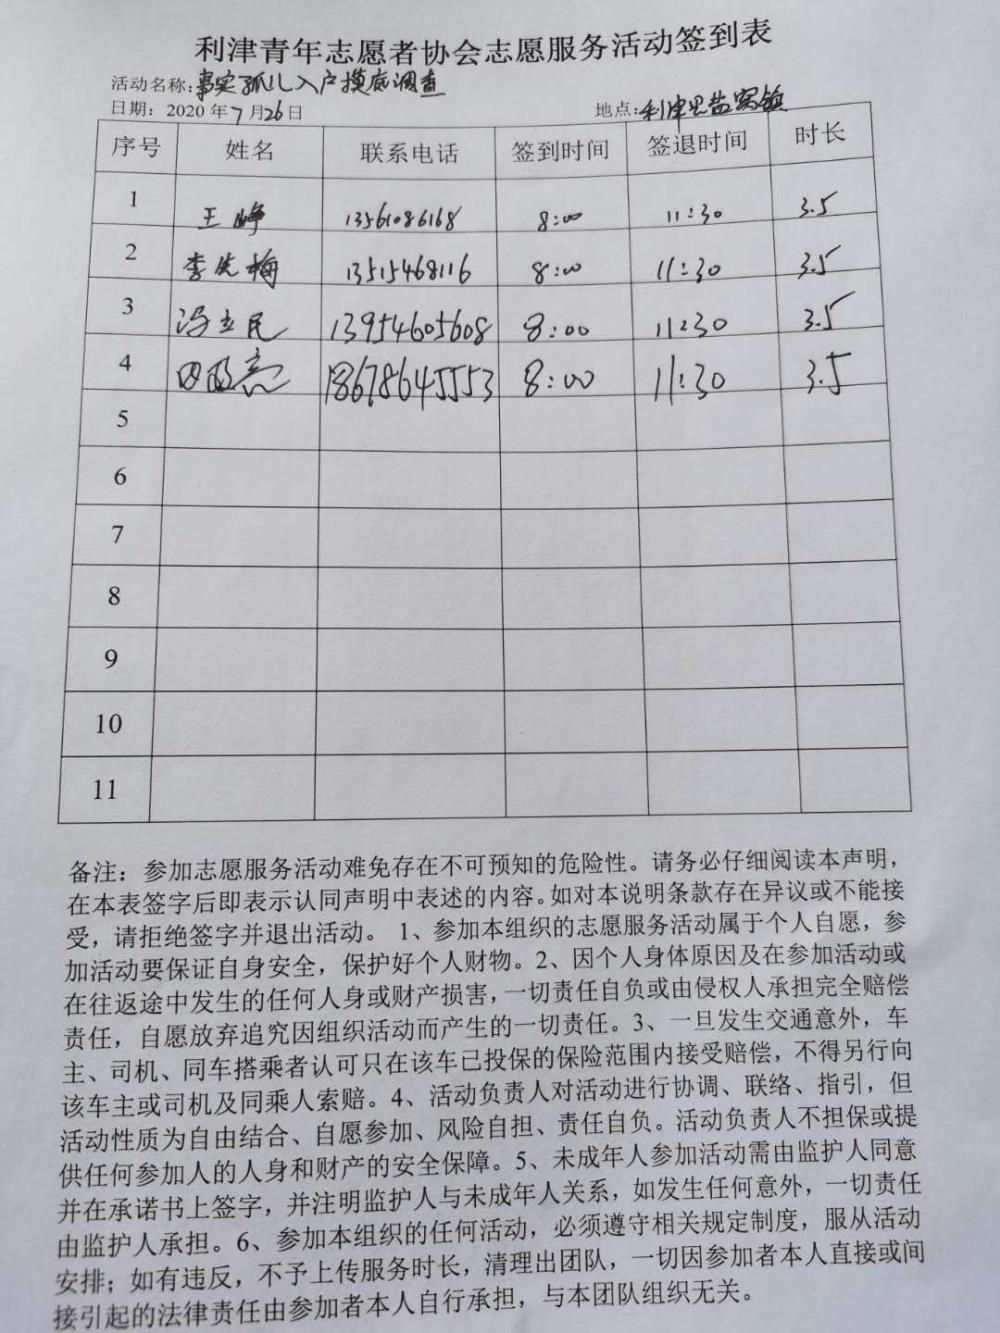 利津青年志愿者协会志愿服务活动签到表
活动名称:事实孤儿入户摸底调查
日期：2020年7月26日 地点:利津县盐窝镇
序号 姓名 联系电话 签到时间 签退时间 时长
1 王峥 13561086168 8:00 11:30 3.5
2 李先梅 13515468116 8:00 11:30 3.5
3 冯立民 13954605608 8:00 11:30 3.5
4 18678645553 8:00 11:30 3.5
5
6
7
8
9
10
11
备注：参加志愿服务活动难免存在不可预知的危险性。请务必仔细阅读本声明，
在本表签字后即表示认同声明中表述的内容。如对本说明条款存在异议或不能接
受，请拒绝签字并退出活动。 1、参加本组织的志愿服务活动属于个人自愿，参
加活动要保证自身安全，保护好个人财物。2、因个人身体原因及在参加活动或
在往返途中发生的任何人身或财产损害，一切责任自负或由侵权人承担完全赔偿
责任，自愿放弃追究因组织活动而产生的一切责任。3、一旦发生交通意外，车
主、司机、同车搭乘者认可只在该车已投保的保险范围内接受赔偿，不得另行向
该车主或司机及同乘人索赔。4、活动负责人对活动进行协调、联络、指引，但
活动性质为自由结合、自愿参加、风险自担、责任自负。活动负责人不担保或提
供任何参加人的人身和财产的安全保障。5、未成年人参加活动需由监护人同意
并在承诺书上签字，并注明监护人与未成年人关系，如发生任何意外，一切责任
由监护人承担。6、参加本组织的任何活动，必须遵守相关规定制度，服从活动
安排；如有违反，不予上传服务时长，清理出团队，一切因参加者本人直接或间
接引起的法律责任由参加者本人自行承担，与本团队组织无关。